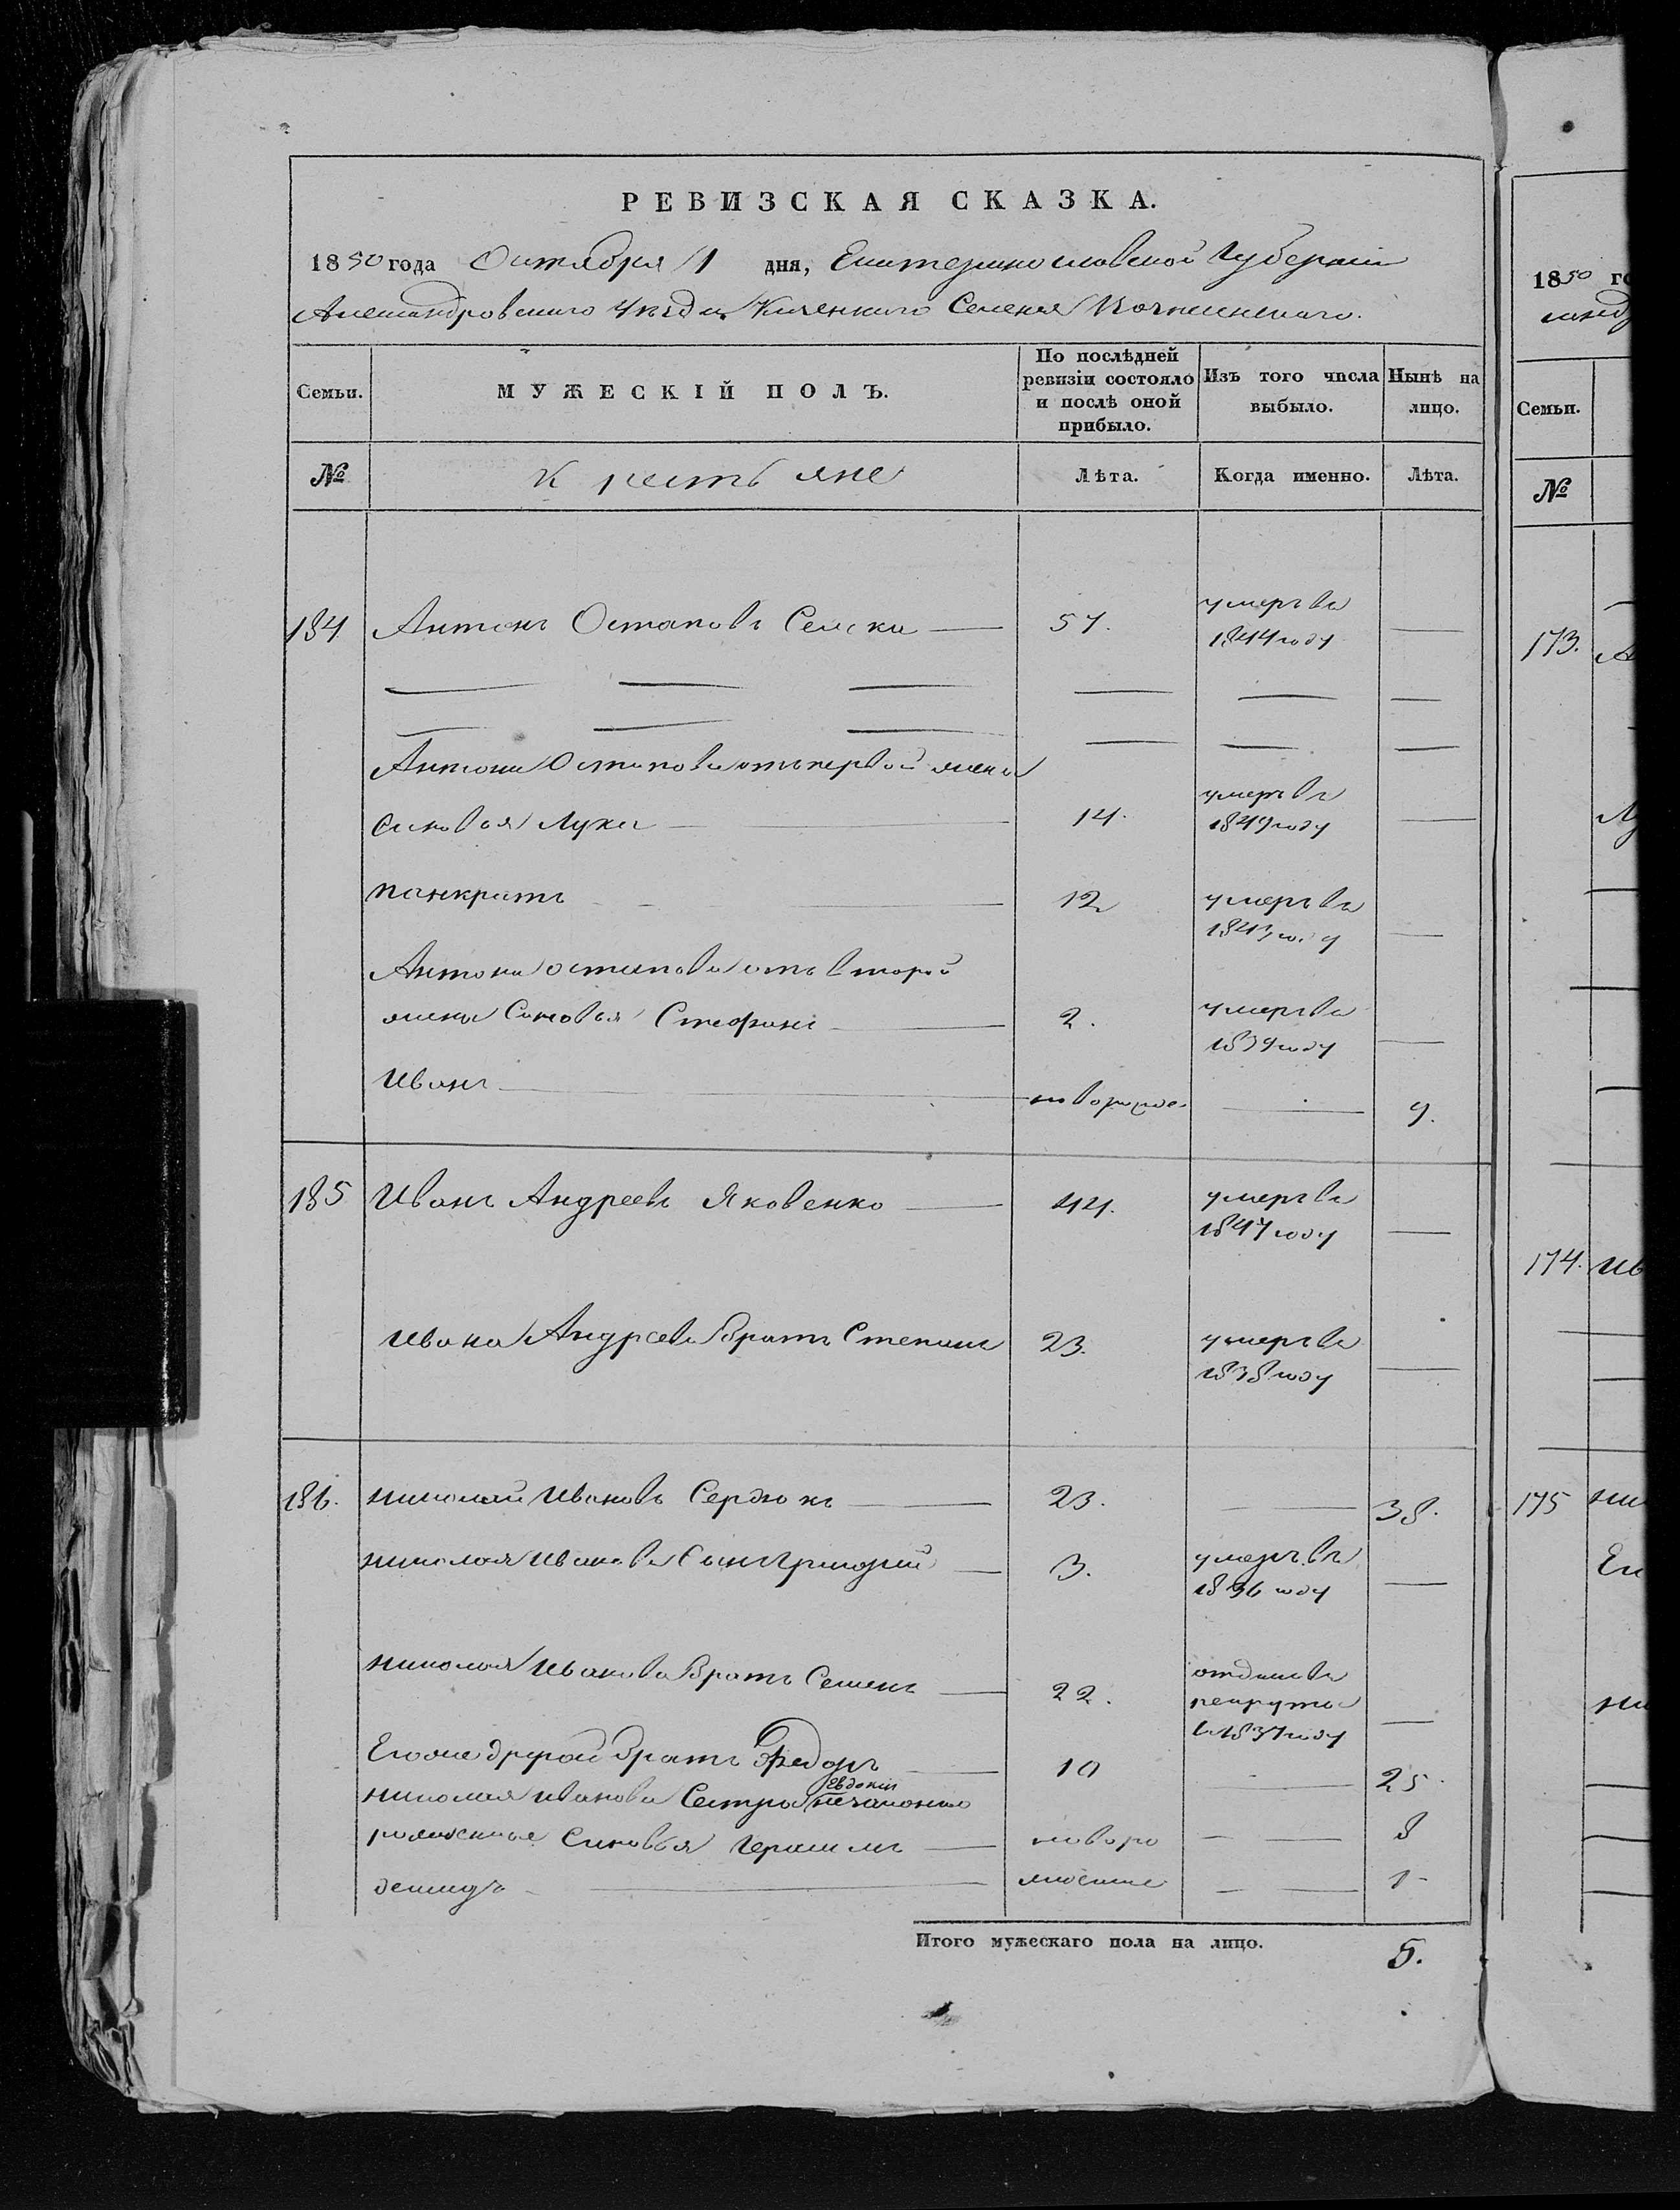 РЕВИЗСКАЯ СКАЗКА.
1850 года Октября 1 дня, Екатеринославской Губернии
Александровского уезда Казенного Селения
Семьи.
МУЖЕСКІЙ ПОЛЪ.
По послѣдней ревизіи состояло и послѣ оной прибыло.
Изъ того числа выбыло.
Нынѣ на лицо.
№ Крестьяне Лѣта. Когда именно. Лѣта.
184 Антонъ Остаповъ 57. умеръ въ
1844 году
Антона Остапова отъ первой жены
Сыновья Лука 14. умеръ въ
1849 году
панкратъ 12 умеръ въ
1843 году
Антона остапова отъ второй
жены Сыновья Стефанъ 2. умеръ въ
1839 году
Иванъ новорожде 9.
185 Иванъ Андреевъ Яковенко 44. умеръ въ
1847 году
Ивана Андреева Братъ Степанъ 23. умеръ въ
1838 году
186. николай Ивановъ Сердюкъ 23. 38.
николая Иванова Сынъ Григорий 3. умеръ въ
1836 году
николая Иванова Братъ Семенъ 22. отданъ въ
рекруты
в 1837 году
Его же другой братъ Федоръ 10 25.
Евдокіи
николая иванова Сестры незаконно
рожденные Сыновья Герасимъ новоро 8
демидъ жденные 1
Итого мужескаго пола на лицо. 5.
1850 го
Семьи.
№
173. А
Лу
174. Ив
175 ни
Ен
ни